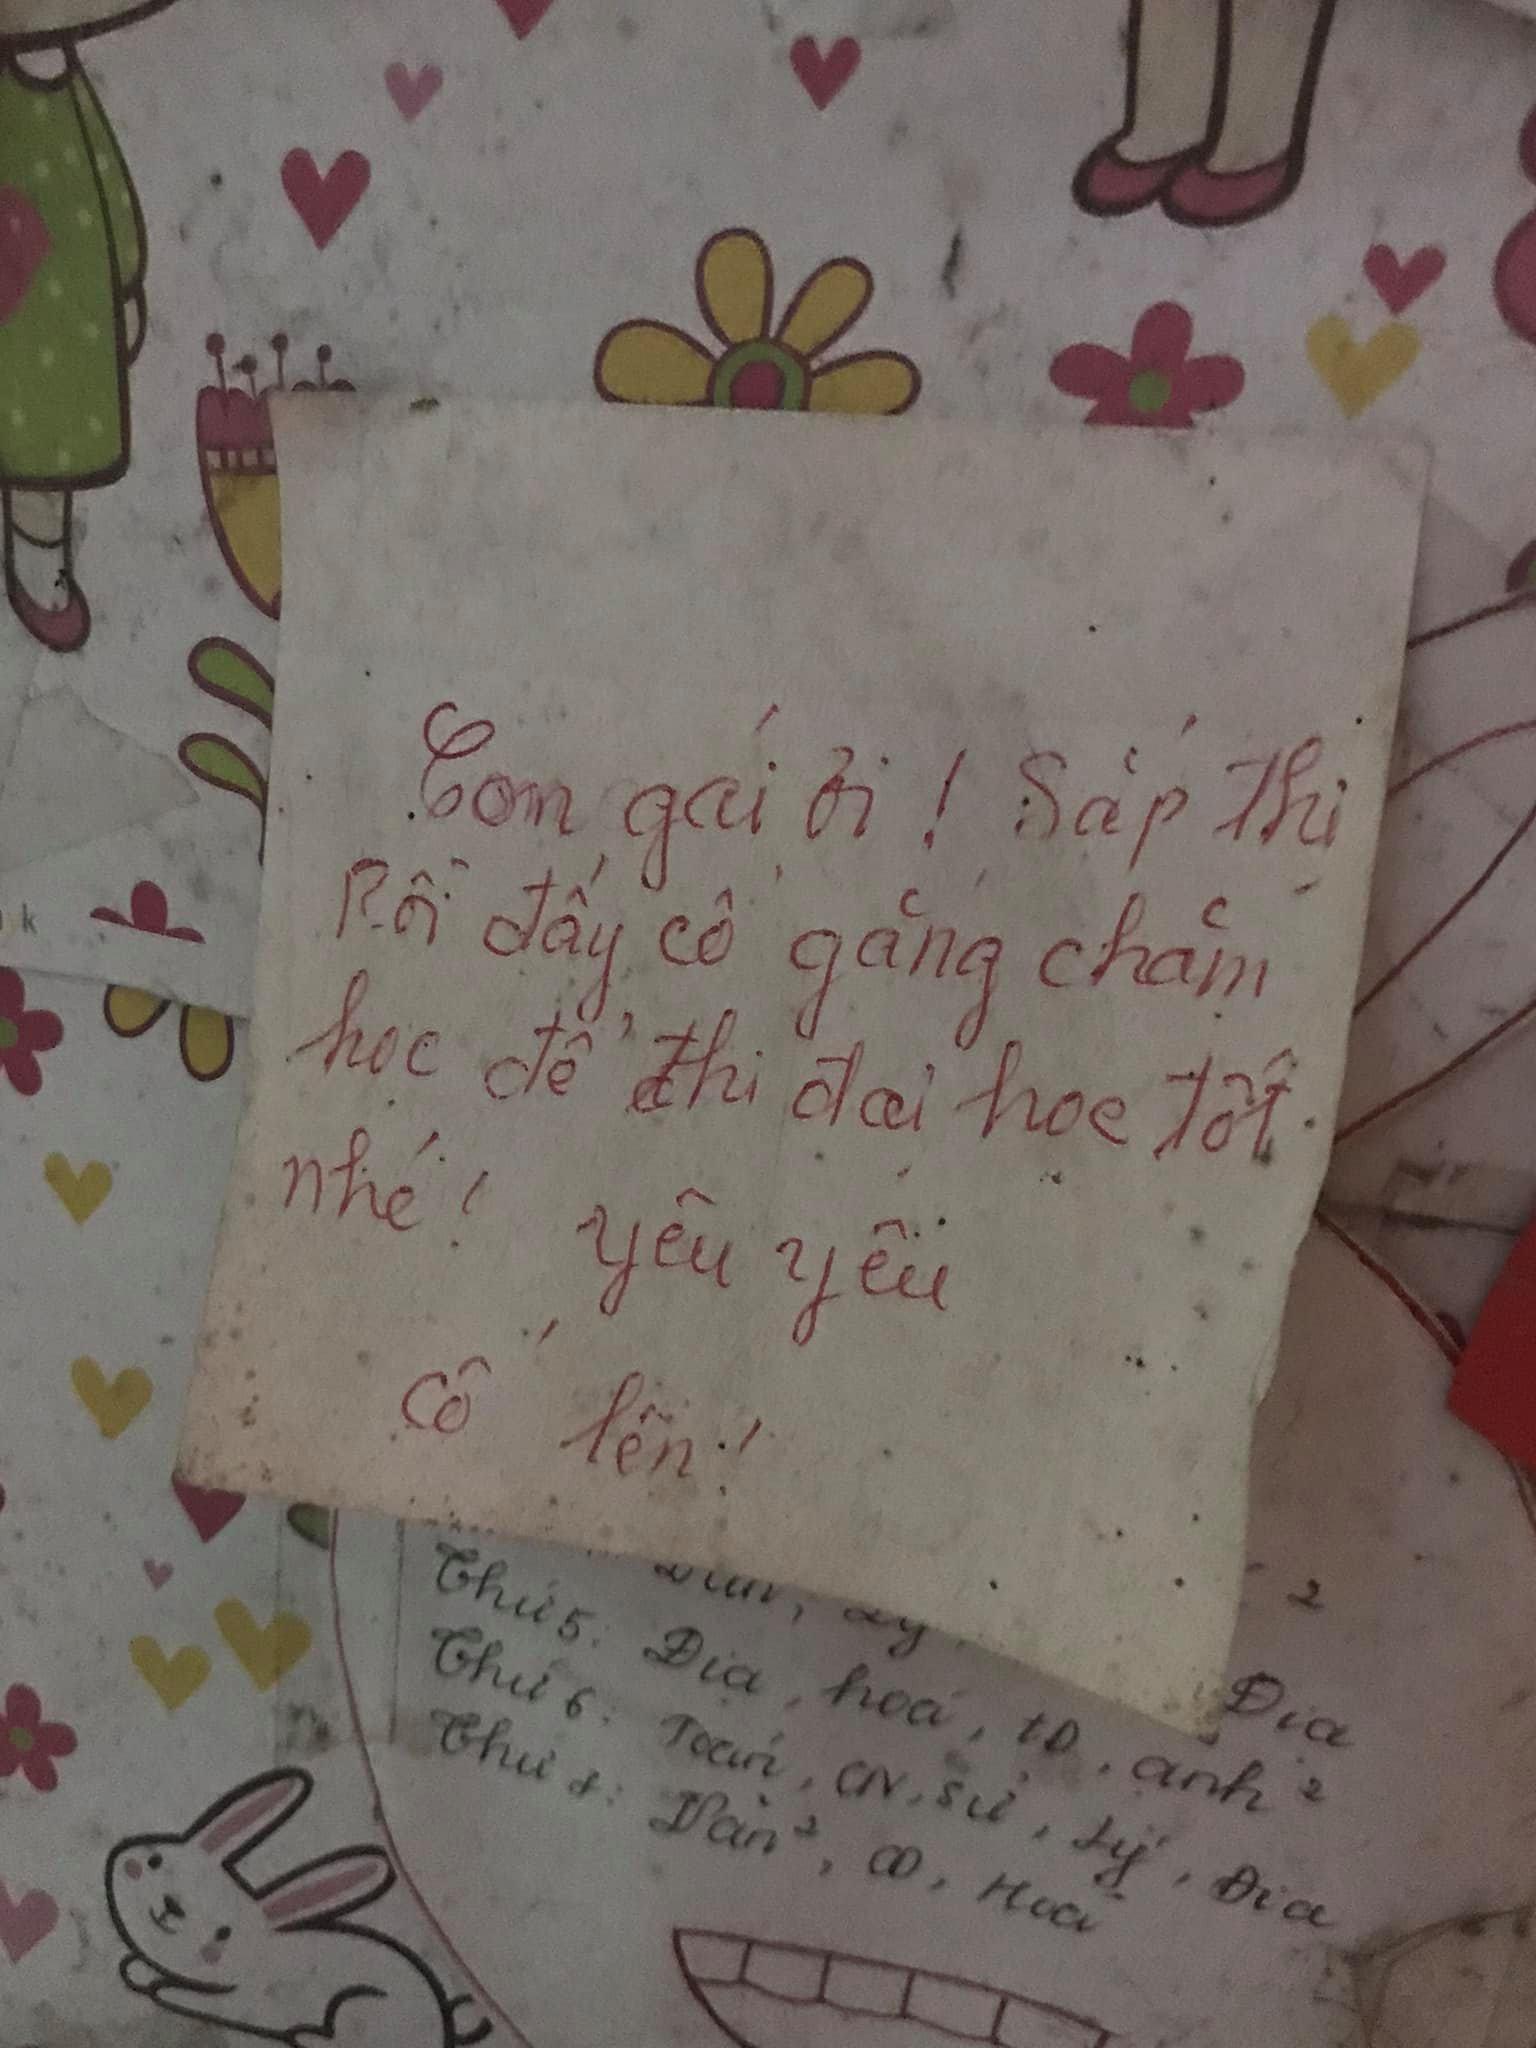 Con gái ơi! Sắp thi
Rồi đấy cố gắng chăm
học để thi đại học tốt
nhé! yêu yêu
cố lên!
Thứ 5: Địa, hoá, TD, anh²
Thứ 6: Toán, CN, Sử, Lý, Địa
Văn², CD, Hoá
Địa
2
k